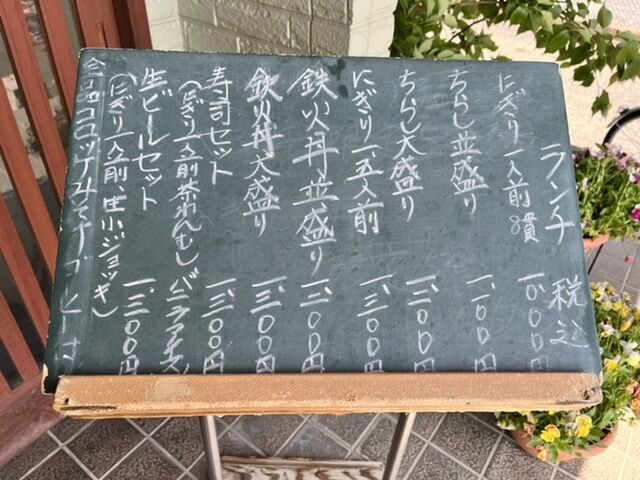 ランチ 税込
にぎり一人前 8貫 一、〇〇〇円
ちらし並盛り 一、一〇〇円
ちらし大盛り 一、三〇〇円
にぎり一、五人前 一、三〇〇円
鉄火丼並盛り 一、一〇〇円
鉄火丼大盛り 一、三〇〇円
寿司セット 一、三〇〇円
(にぎり一人前茶わんむし バニラアイス
生ビールセット 一、三〇〇円
(にぎり一人前、生小ジョッキ)
全品